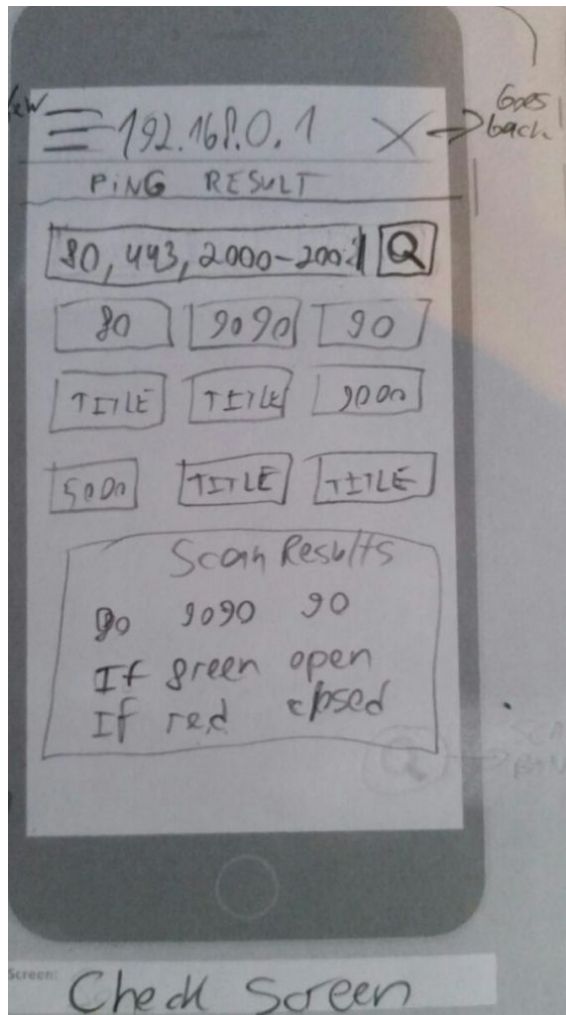 192.168.0.1
Goes
back
PING RESULT
80, 443, 2000-200
80 9090 90
TITLE TITLE 9000
5000 TITLE TITLE
Scan Results
80 9090 90
If green open
If red closed
Screen:
Check Screen